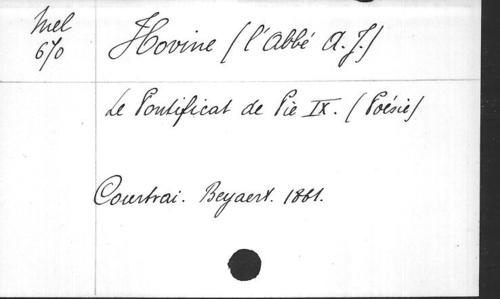 Mel
670
Hovine (l'Abbé A.J.)
Le Pontificat de Pie IX. (Poésie)
Courtrai. Beyaert. 1861.